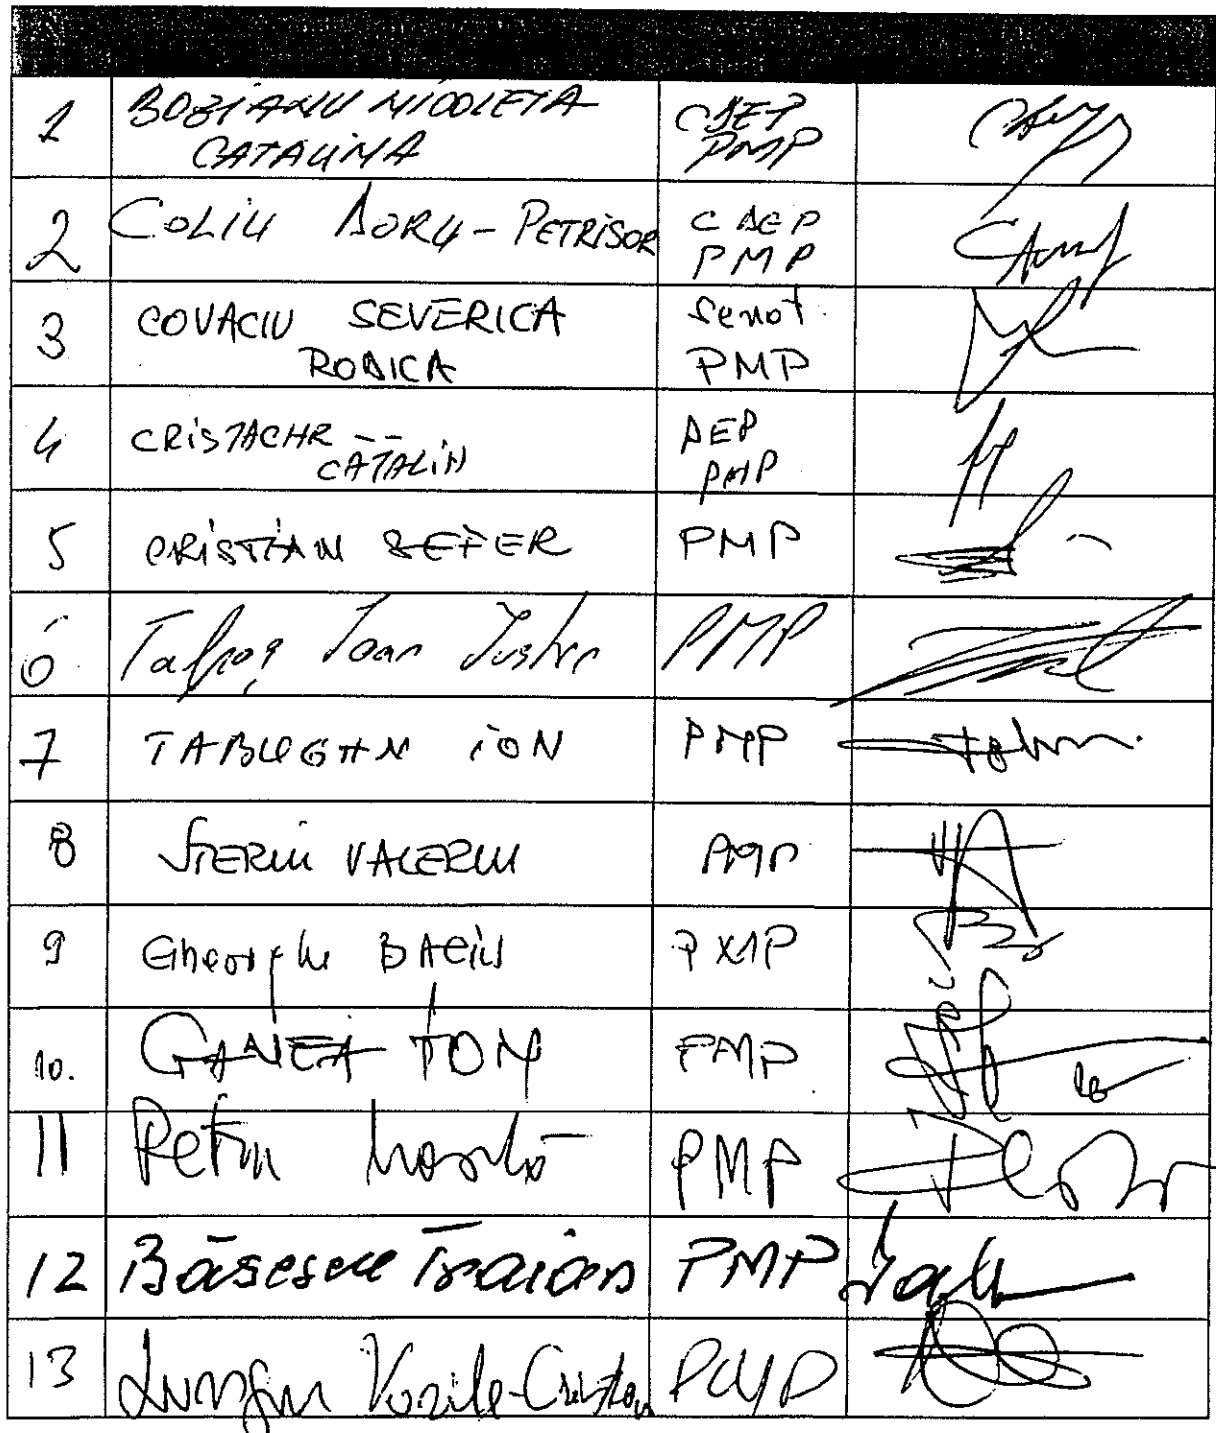 1 BOZIANU NICOLETA CDEP
CATALINA PMP
2 COLIU DORU-PETRISOR CDEP
PMP
3 COVACIU SEVERICA Senat
RODICA PMP
4 CRISTACHE DEP
CĂTĂLIN PMP
5 CRISTIAN SEFER PMP
6 Talpoș Ioan Iustin PMP
7 TABUGAN ION PMP
8 STERIU VALERIU PMP
9 Gheorghe BACIU PMP
10. GANEA ION PMP
11 Petru PMP
12 Băsescu Traian PMP
13 Lungu Vasile-Cristian PMP